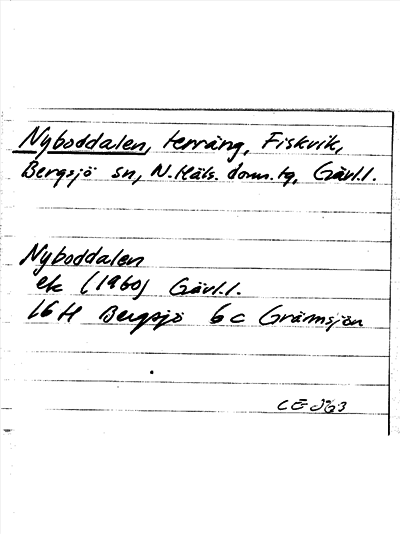 Nyboddalen, terräng, Fiskvik,
Bergsjö sn, N. Häls. doms.tg, Gävl.l.
Nyboddalen
ek (1960) Gävl.l.
16 H Bergsjö 6 c Grännsjön